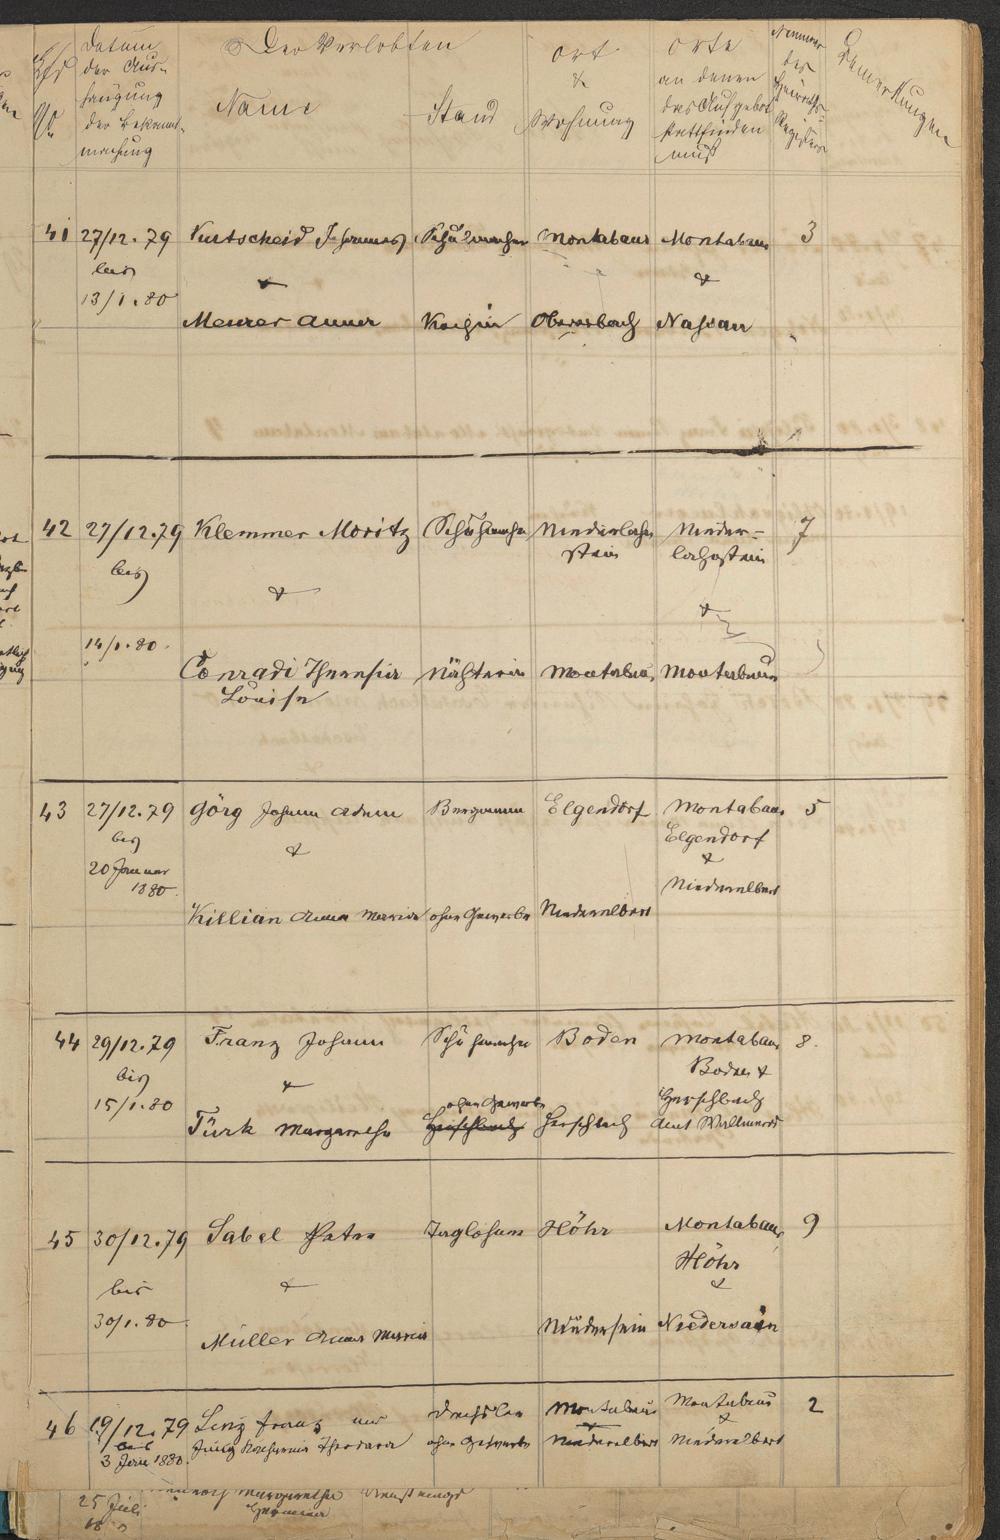 Lfd
No
Datum
der Aus-
hängung
der Bekannt-
machung
Der Verlobten
Name
Stand
Ort
&
Wohnung
Orte
an denen
das Aufgebot
stattfinden
muß
Nummer
des
Heiraths-
Registers
Bemerkungen
41 27/12.79 Kurtscheid Johannes Schuhmacher Montabaur Montabaur 3
bis
13/1.80 & &
Meurer Anna Köchin Nassau
42 27/12.79 Klemmer Moritz Schuhmacher Niederlahn Nieder- 7
stein lahnstein
bis
& &
14/1.80.
Conradi Theresia Nähterin Montabaur Montabaur
Louise
43 27/12.79 Görg Johann Adam Bergmann Elgendorf Montabaur 5
bis Elgendorf
& &
20 Januar
1880. Niederelbert
Killian Anna Maria ohne Gewerbe Niederelbert
44 29/12.79 Franz Johann Schuhmacher Boden Montabaur 8.
bis Boden &
&
15/1.80 ohne Gewerbe Herschbach
Türk Margaretha Herschbach Herschbach Amt Wallmerod
45 30/12.79 Sabel Peter Taglöhner Höhr Montabaur 9
Höhr
bis & &
30/1.80
Müller Anna Maria Niedersain Niedersain
46 19/12.79 Lenz Franz und Drechsler Montabaur Montabaur 2
bis & &
3 Jan 1880. Jung Katharina Theodora ohne Gewerbe Niederelbert Niederelbert
Margaretha Dienstmagd
25 Juli
Germina